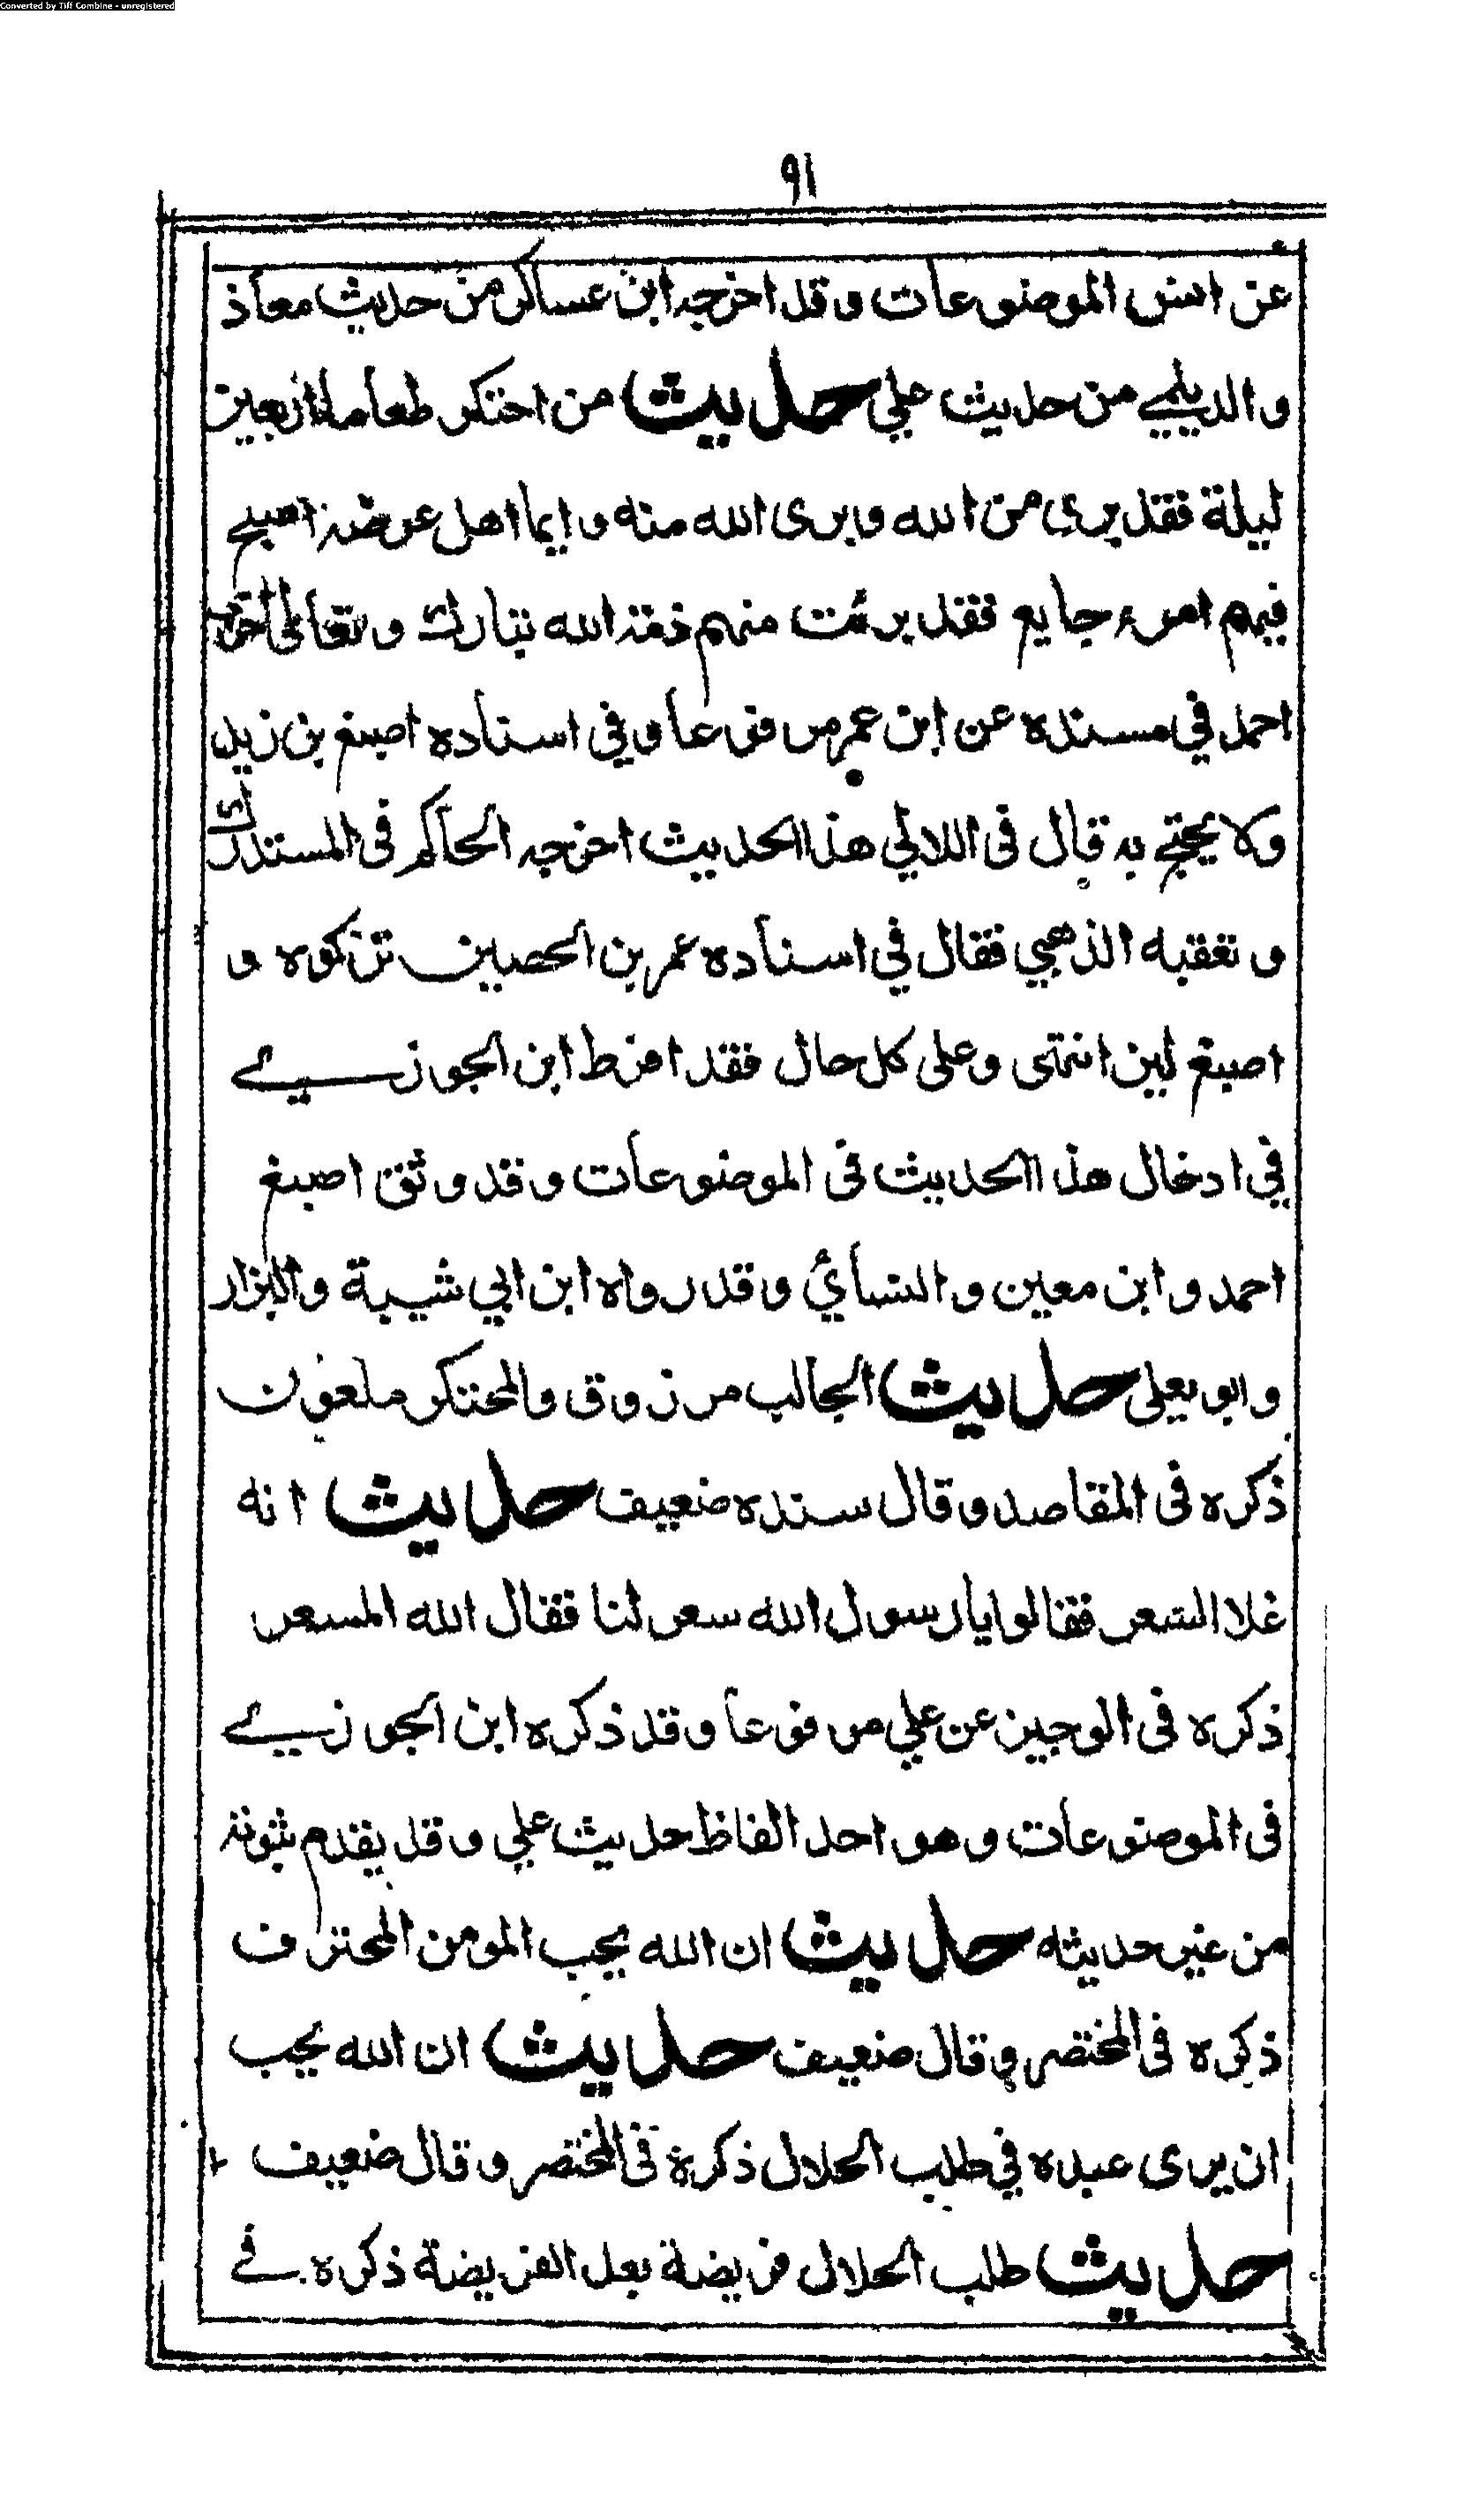 Converted by Tiff Combine - unregistered
٩١
عن انس الموضوعات وقد اخرجه ابن عساكر من حديث معاذ
والديلمي من حديث علي حديث من احتكر طعاما اربعين
ليلة فقد برى من الله وبرى الله منه وايما اهل عرضة اصبح
فيهم امرء جايع فقد برئت منهم ذمة الله تبارك وتعالى اخرجه
احمد في مسنده عن ابن عمر مرفوعا وفي اسناده اصبغ بن زيد
ولا يحتج به قال فى اللالي هذا الحديث اخرجه الحاكم فى المستدرك
وتعقبه الذهبي فقال في اسناده عمر بن الحصين تركوه و
اصبغ لين انتهى وعلى كل حال فقد افرط ابن الجوزي
في ادخال هذا الحديث فى الموضوعات وقد وثق اصبغ
احمد وابن معين والنسائي وقد رواه ابن ابي شيبة والبزار
وابو يعلى حديث الجالب مرزوق والمحتكر ملعون
ذكره فى المقاصد وقال سنده ضعيف حديث انه
غلا السعر فقالوا يا رسول الله سعر لنا فقال الله المسعر
ذكره فى الوجيز عن علي مرفوعا وقد ذكره ابن الجوزي
فى الموضوعات وهو احد الفاظ حديث علي وقد يقدم ثبوته
من غير حديثه حديث ان الله يحب المومن المحترف
ذكره فى المختصر وقال ضعيف حديث ان الله يحب
ان يرى عبده في طلب الحلال ذكره فى المختصر وقال ضعيف
حديث طلب الحلال فريضة بعد الفريضة ذكره في